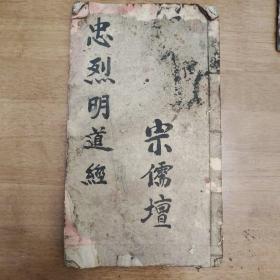 忠烈明道經
宗儒壇